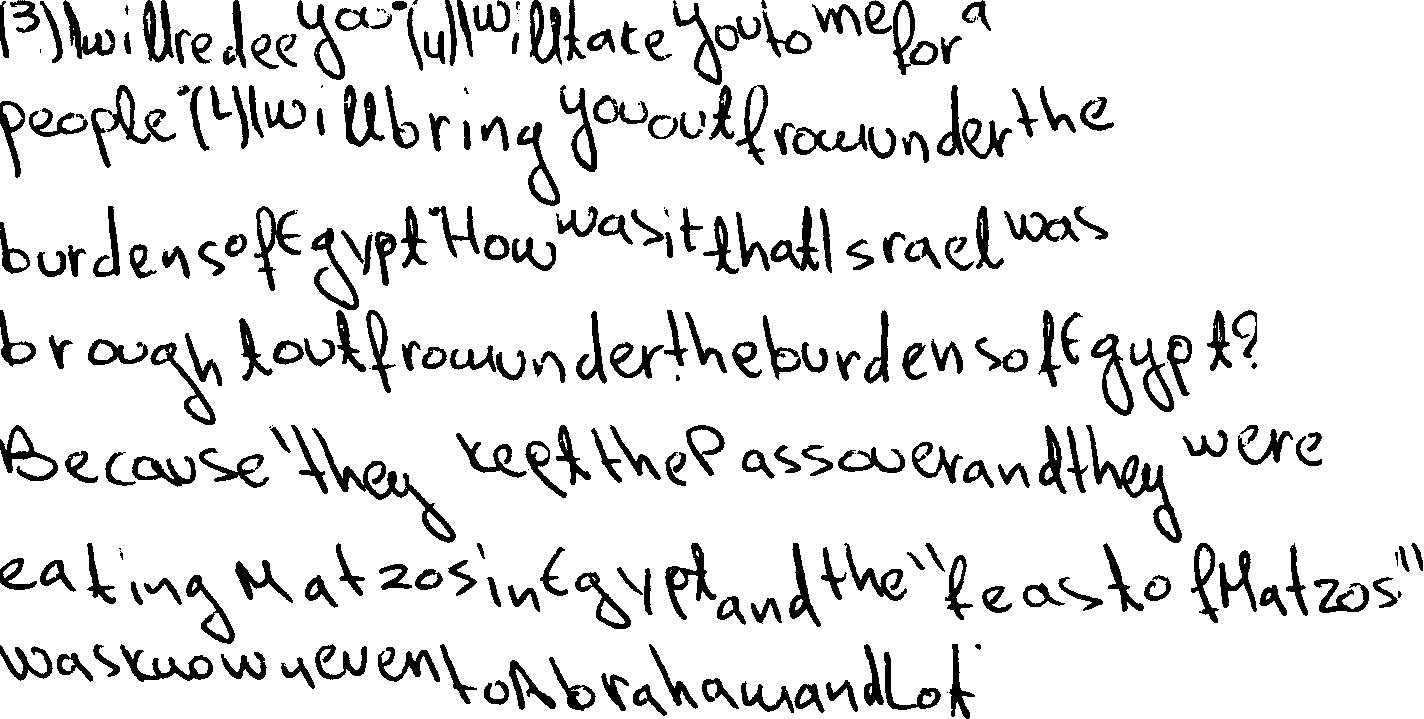 (3) I will redee you" (4) I will take you to me for a
people" (4) I will bring you out from under the
burdens of Egypt "How was it that Israel was
brought out from under the burdens of Egypt?
Because "they kept the Passover and they were
eating Matzos' in Egypt and the "feast of Matzos"
was known even to Abraham and Lot